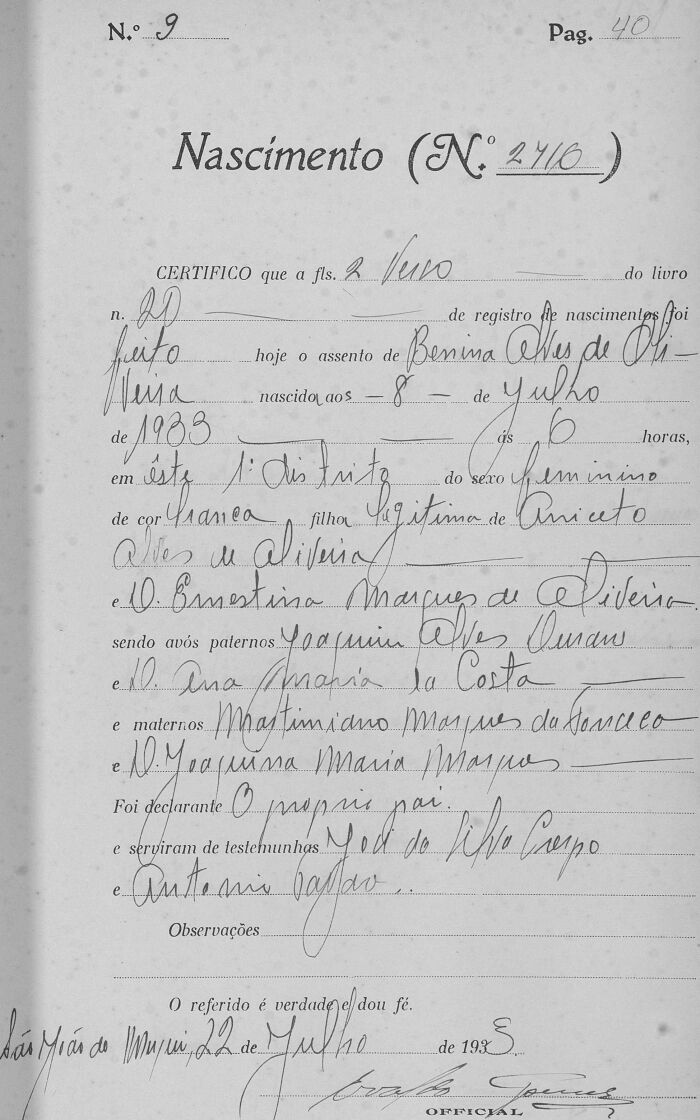 N.º 9 Pag. 40
Nascimento (N.º 2710)
CERTIFICO que a fls. 2 Verso do livro
n. 20 de registro de nascimentos foi
feito hoje o assento de Benina Alves de Oli-
veira nascida aos - 8 - de Julho
de 1933 ás 6 horas,
em êste 1º distrito do sexo feminino
de cor branca filha legitima de Aniceto
Alves de Oliveira
e D. Ernestina Marques de Oliveira
sendo avós paternos Joaquim Alves
e D. Ana Maria da Costa
e maternos Martimiano Marques da Fonceca
e D. Joaquina Maria Marques
Foi declarante O proprio pai.
e serviram de testemunhas da Silva Crespo
e Antonio
Observações
O referido é verdade e dou fé.
São João do Muqui, 22 de Julho de 1933.
OFFICIAL